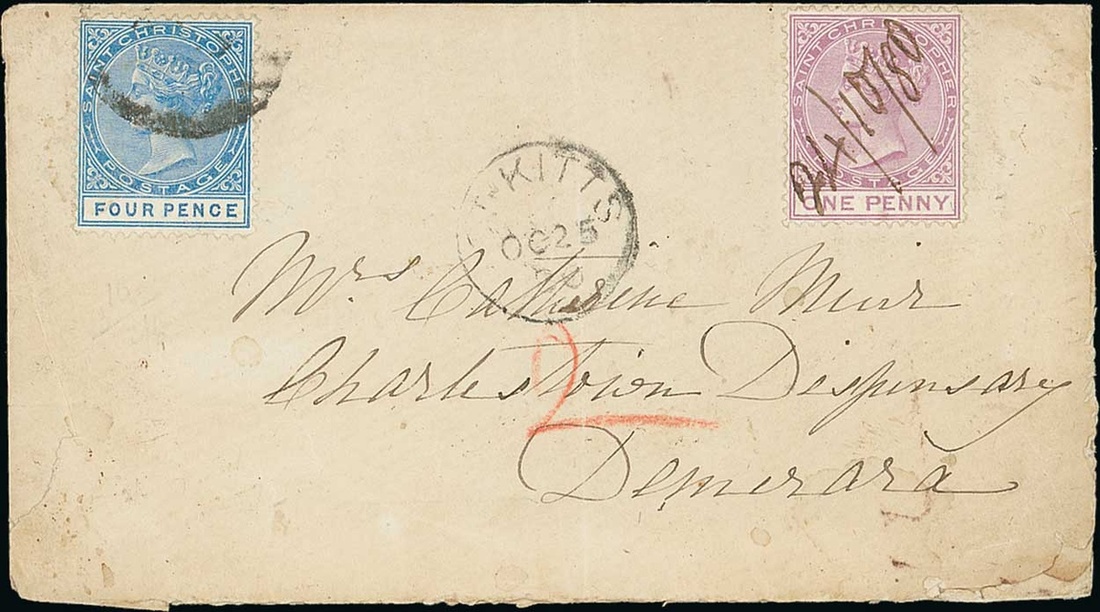 SAINT CHRISTOPHER
POSTAGE
FOUR PENCE
SAINT CHRISTOPHER
POSTAGE
ONE PENNY
24/10/80
ST KITTS
OC 25
80
Mrs Catherine Muir
Charlestown Dispensary
Demerara
2